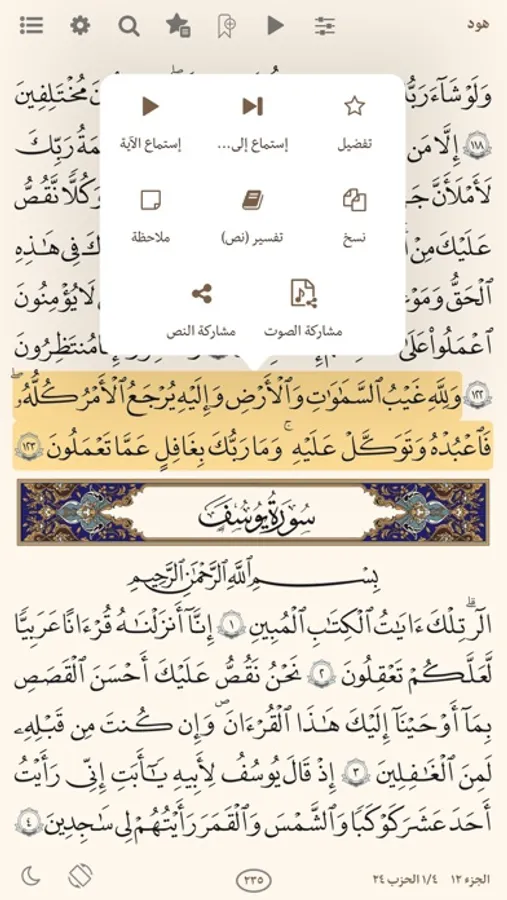 هود
وَلَوْ شَآءَ رَبُّ
مُخْتَلِفِينَ
١١٨ إِلَّا مَن
رَبِّكَ
لَأَمْلَأَنَّ
وَكُلًّا نَّقُصُّ
عَلَيْكَ مِنْ
فِى هَـٰذِهِ
ٱلْحَقُّ وَمَوْ
لَا يُؤْمِنُونَ
ٱعْمَلُوا۟ عَلَىٰ
مُنتَظِرُونَ
تفضيل
إستماع إلى...
إستماع الآية
نسخ
تفسير (نص)
ملاحظة
مشاركة الصوت
مشاركة النص
١٢٢ وَلِلَّهِ غَيْبُ ٱلسَّمَـٰوَٰتِ وَٱلْأَرْضِ وَإِلَيْهِ يُرْجَعُ ٱلْأَمْرُ كُلُّهُۥ
فَٱعْبُدْهُ وَتَوَكَّلْ عَلَيْهِ ۚ وَمَا رَبُّكَ بِغَـٰفِلٍ عَمَّا تَعْمَلُونَ ١٢٣
سُورَةُ يُوسُفَ
بِسْمِ ٱللَّهِ ٱلرَّحْمَـٰنِ ٱلرَّحِيمِ
الٓر ۚ تِلْكَ ءَايَـٰتُ ٱلْكِتَـٰبِ ٱلْمُبِينِ ١ إِنَّآ أَنزَلْنَـٰهُ قُرْءَٰنًا عَرَبِيًّا
لَّعَلَّكُمْ تَعْقِلُونَ ٢ نَحْنُ نَقُصُّ عَلَيْكَ أَحْسَنَ ٱلْقَصَصِ
بِمَآ أَوْحَيْنَآ إِلَيْكَ هَـٰذَا ٱلْقُرْءَانَ وَإِن كُنتَ مِن قَبْلِهِۦ
لَمِنَ ٱلْغَـٰفِلِينَ ٣ إِذْ قَالَ يُوسُفُ لِأَبِيهِ يَـٰٓأَبَتِ إِنِّى رَأَيْتُ
أَحَدَ عَشَرَ كَوْكَبًا وَٱلشَّمْسَ وَٱلْقَمَرَ رَأَيْتُهُمْ لِى سَـٰجِدِينَ ٤
الجزء ١٢ ١/٤ الحزب ٢٤
٢٣٥